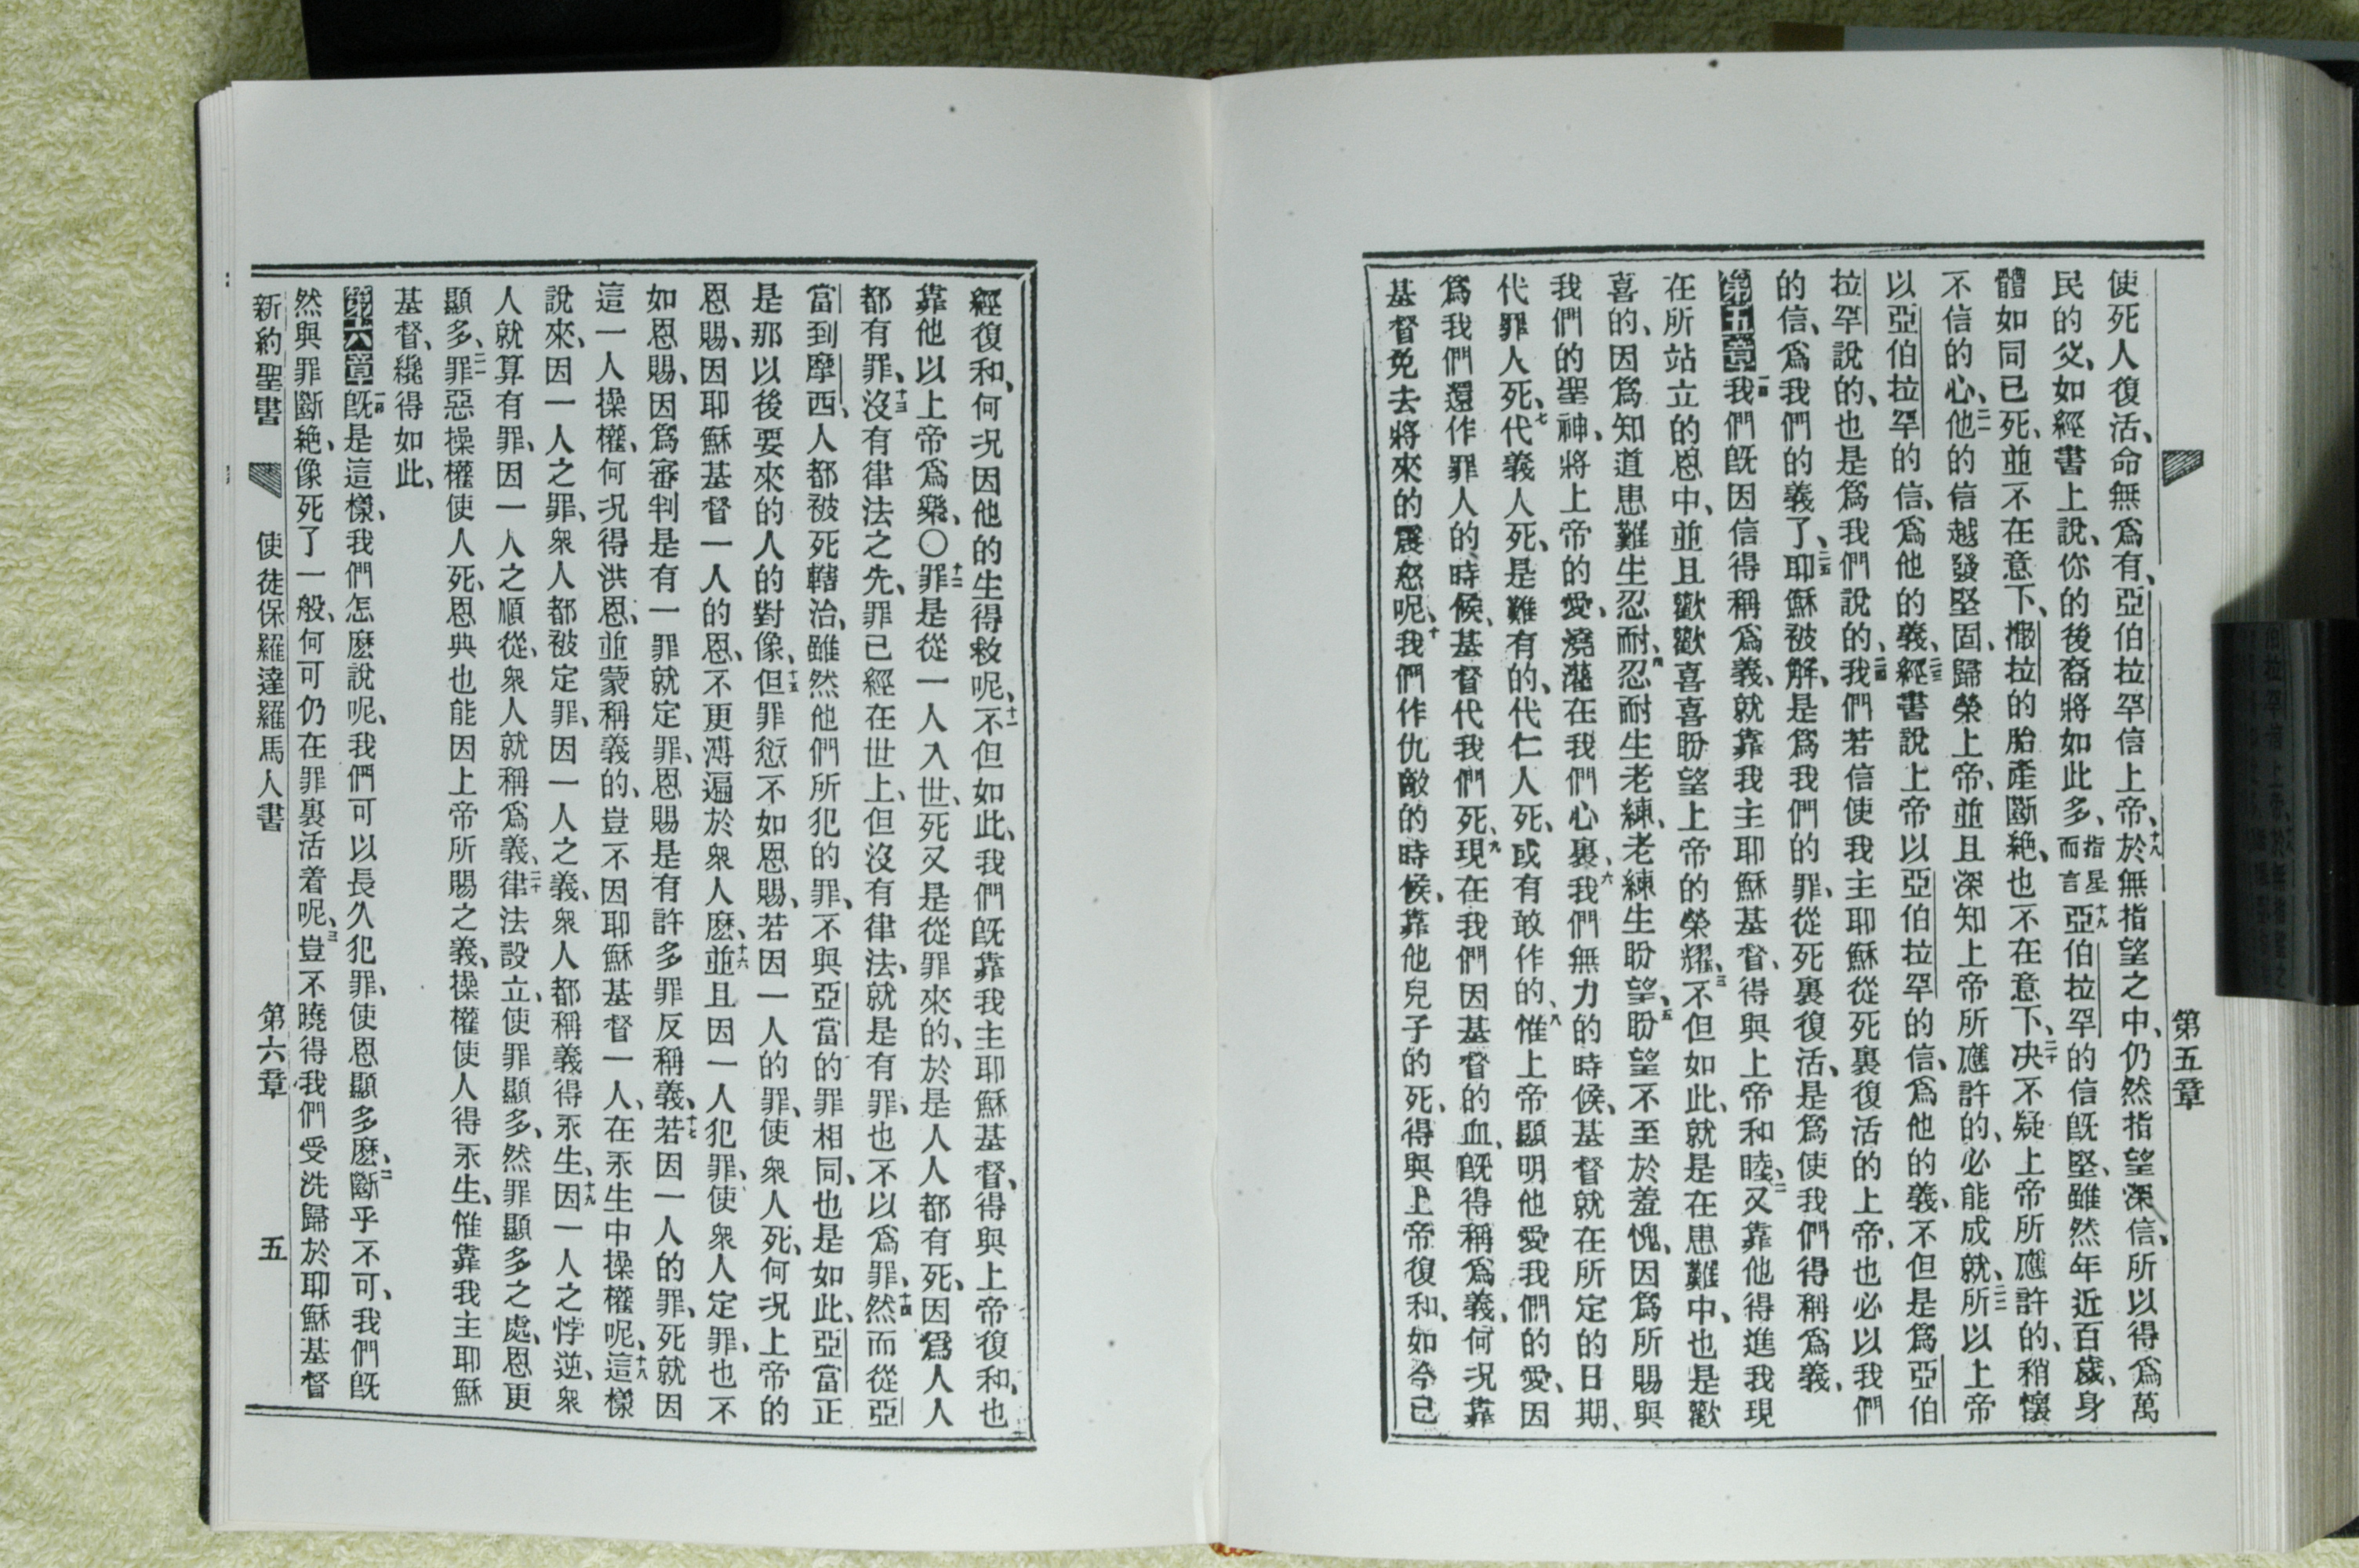 第五章
使死人復活、命無爲有、亞伯拉罕信上帝、十八於無指望之中、仍然指望深信、所以得爲萬
民的父、如經書上說、你的後裔將如此多、指星而言十九亞伯拉罕的信旣堅、雖然年近百歲、身
體如同已死、並不在意下、撒拉的胎產斷絕、也不在意下、二十決不疑上帝所應許的、稍懷
不信的心、二一他的信越發堅固、歸榮上帝、並且深知上帝所應許的、必能成就、二二所以上帝
以亞伯拉罕的信、爲他的義、二三經書說上帝以亞伯拉罕的信、爲他的義、不但是爲亞伯
拉罕說的、也是爲我們說的、二四我們若信使我主耶穌從死裏復活的上帝、也必以我們
的信、爲我們的義了、二五耶穌被解、是爲我們的罪、從死裏復活、是爲使我們得稱爲義、
第五章一節我們旣因信得稱爲義、就靠我主耶穌基督、得與上帝和睦、二又靠他得進我現
在所站立的恩中、並且歡歡喜喜盼望上帝的榮耀、三不但如此、就是在患難中、也是歡
喜的、因爲知道患難生忍耐、四忍耐生老練、老練生盼望、五盼望不至於羞愧、因爲所賜與
我們的聖神、將上帝的愛、澆灌在我們心裏、六我們無力的時候、基督就在所定的日期、
代罪人死、七代義人死、是難有的、代仁人死、或有敢作的、八惟上帝顯明他愛我們的愛、因
爲我們還作罪人的時候、基督代我們死、九現在我們因基督的血、旣得稱爲義、何况靠
基督免去將來的震怒呢、十我們作仇敵的時候、靠他兒子的死、得與上帝復和、如今已
經復和、何况因他的生得救呢、十一不但如此、我們旣靠我主耶穌基督、得與上帝復和、也
靠他以上帝爲樂、〇十二罪是從一人入世、死又是從罪來的、於是人人都有死、因爲人人
都有罪、十三沒有律法之先、罪已經在世上、但沒有律法、就是有罪、也不以爲罪、十四然而從亞
當到摩西、人都被死轄治、雖然他們所犯的罪、不與亞當的罪相同、也是如此、亞當正
是那以後要來的人的對像、十五但罪愆不如恩賜、若因一人的罪、使衆人死、何况上帝的
恩賜、因耶穌基督一人的恩、不更溥遍於衆人麽、十六並且因一人犯罪、使衆人定罪、也不
如恩賜、因爲審判是有一罪就定罪、恩賜是有許多罪反稱義、十七若因一人的罪、死就因
這一人操權、何况得洪恩、並蒙稱義的、豈不因耶穌基督一人、在永生中操權呢、十八這樣
說來、因一人之罪、衆人都被定罪、因一人之義、衆人都稱義得永生、十九因一人之悖逆、衆
人就算有罪、因一人之順從、衆人就稱爲義、二十律法設立、使罪顯多、然罪顯多之處、恩更
顯多、二一罪惡操權使人死、恩典也能因上帝所賜之義、操權使人得永生、惟靠我主耶穌
基督、纔得如此、
第六章一節旣是這樣、我們怎麽說呢、我們可以長久犯罪、使恩顯多麽、二斷乎不可、我們旣
然與罪斷絕、像死了一般、何可仍在罪裏活着呢、三豈不曉得我們受洗歸於耶穌基督
新約聖書 使徒保羅達羅馬人書 第六章 五